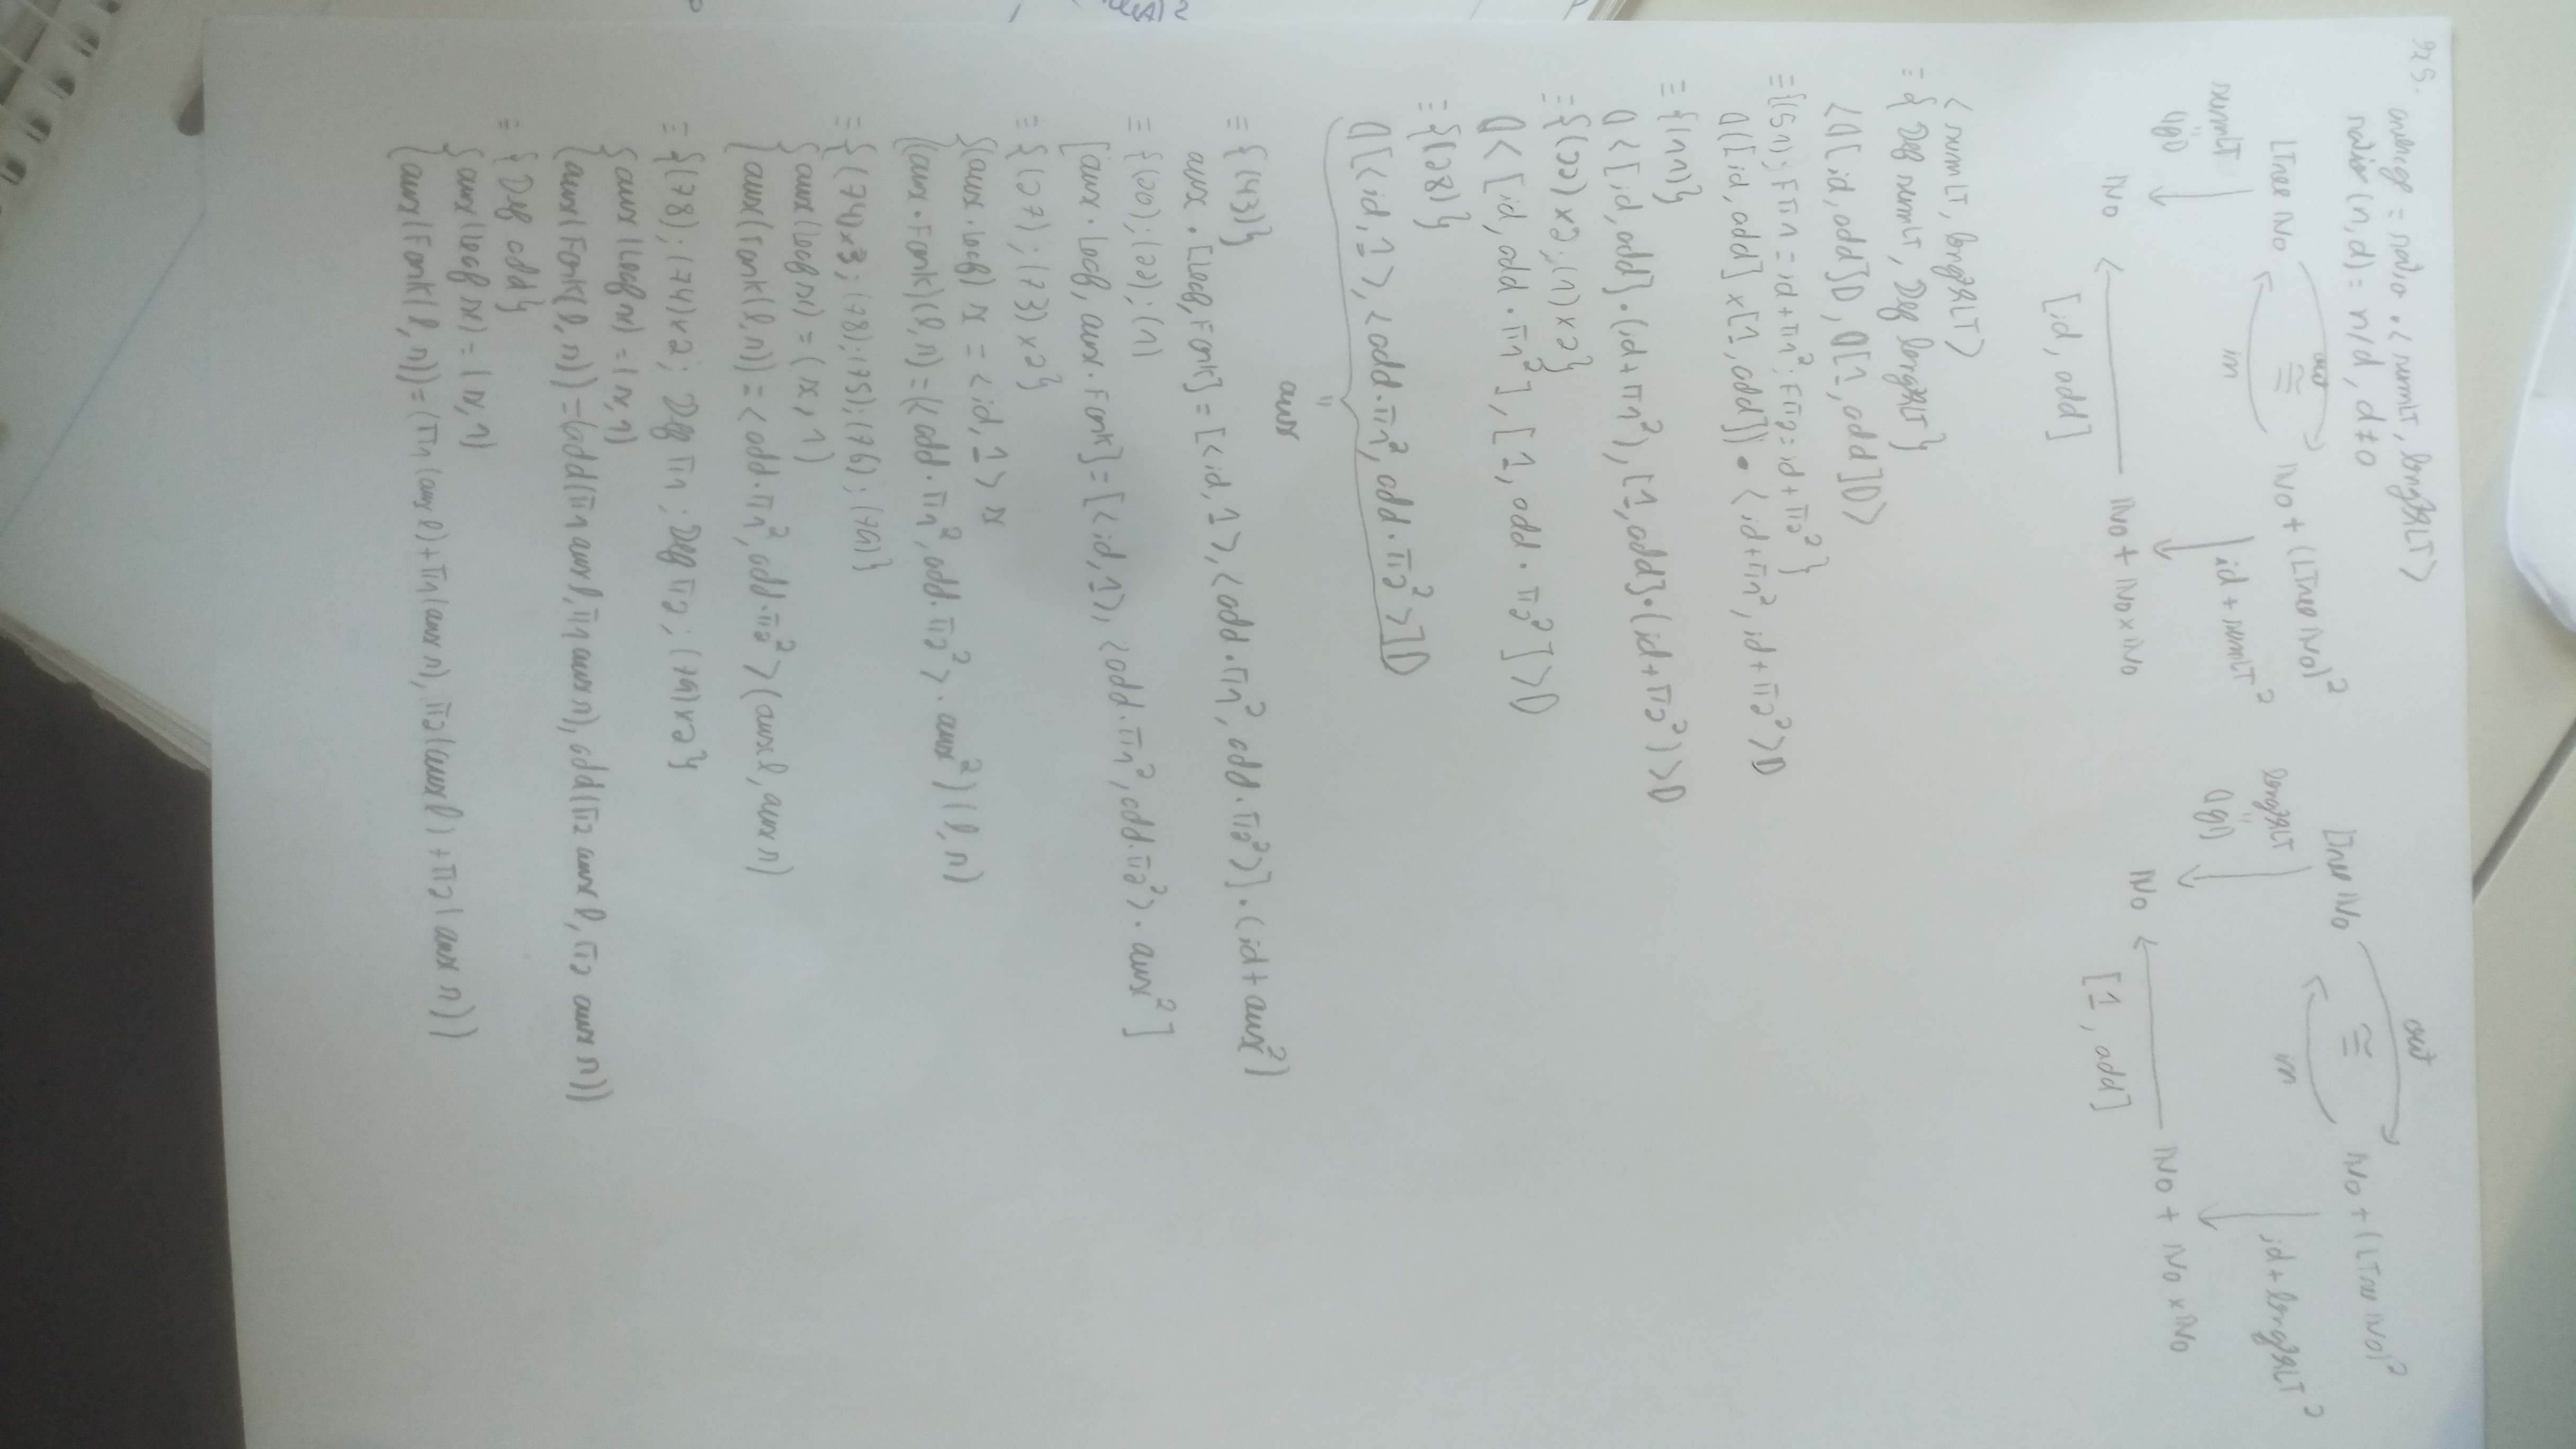 ex5.
average = ratio · < sumLT, lengthLT >
ratio (n, d) = n/d, d ≠ 0
LTree ℕ₀ ≅ ℕ₀ + (LTree ℕ₀)²
out
in
sumLT = ⦇g⦈
id + sumLT²
ℕ₀ ← ℕ₀ + ℕ₀ × ℕ₀
[id, add]
LTree ℕ₀ ≅ ℕ₀ + (LTree ℕ₀)²
out
in
lengthLT = ⦇g⦈
id + lengthLT²
ℕ₀ ← ℕ₀ + ℕ₀ × ℕ₀
[1, add]
< sumLT, lengthLT >
≡ { Def sumLT, Def lengthLT }
< ⦇[id, add]⦈, ⦇[1, add]⦈ >
≡ {(51); Fπ1 = id + π1²; Fπ2 = id + π2² }
⦇([id, add] × [1, add]) · < id + π1², id + π2² >⦈
≡ {(11)}
⦇< [id, add] · (id + π1²), [1, add] · (id + π2²) >⦈
≡ {(22) x2; (1) x2}
⦇< [id, add · π1²], [1, add · π2²] >⦈
≡ {(28)}
⦇[< id, 1 >, < add · π1², add · π2² >]⦈
=
aux
≡ {(43)}
aux · [Leaf, Fork] = [< id, 1 >, < add · π1², add · π2² >] · (id + aux²)
≡ {(20); (22); (1)}
[aux · Leaf, aux · Fork] = [< id, 1 >, < add · π1², add · π2² > · aux²]
≡ {(27); (73) x2}
{ (aux · Leaf) x = < id, 1 > x
{ (aux · Fork) (l, r) = (< add · π1², add · π2² > · aux²) (l, r)
≡ {(74) x3; (78); (75); (76); (79)}
{ aux (Leaf x) = (x, 1)
{ aux (Fork (l, r)) = < add · π1², add · π2² > (aux l, aux r)
≡ {(78); (74) x2; Def π1; Def π2; (79) x2}
{ aux (Leaf x) = (x, 1)
{ aux (Fork (l, r)) = (add (π1 aux l, π1 aux r), add (π2 aux l, π2 aux r))
≡ { Def add }
{ aux (Leaf x) = (x, 1)
{ aux (Fork (l, r)) = (π1 (aux l) + π1 (aux r), π2 (aux l) + π2 (aux r))